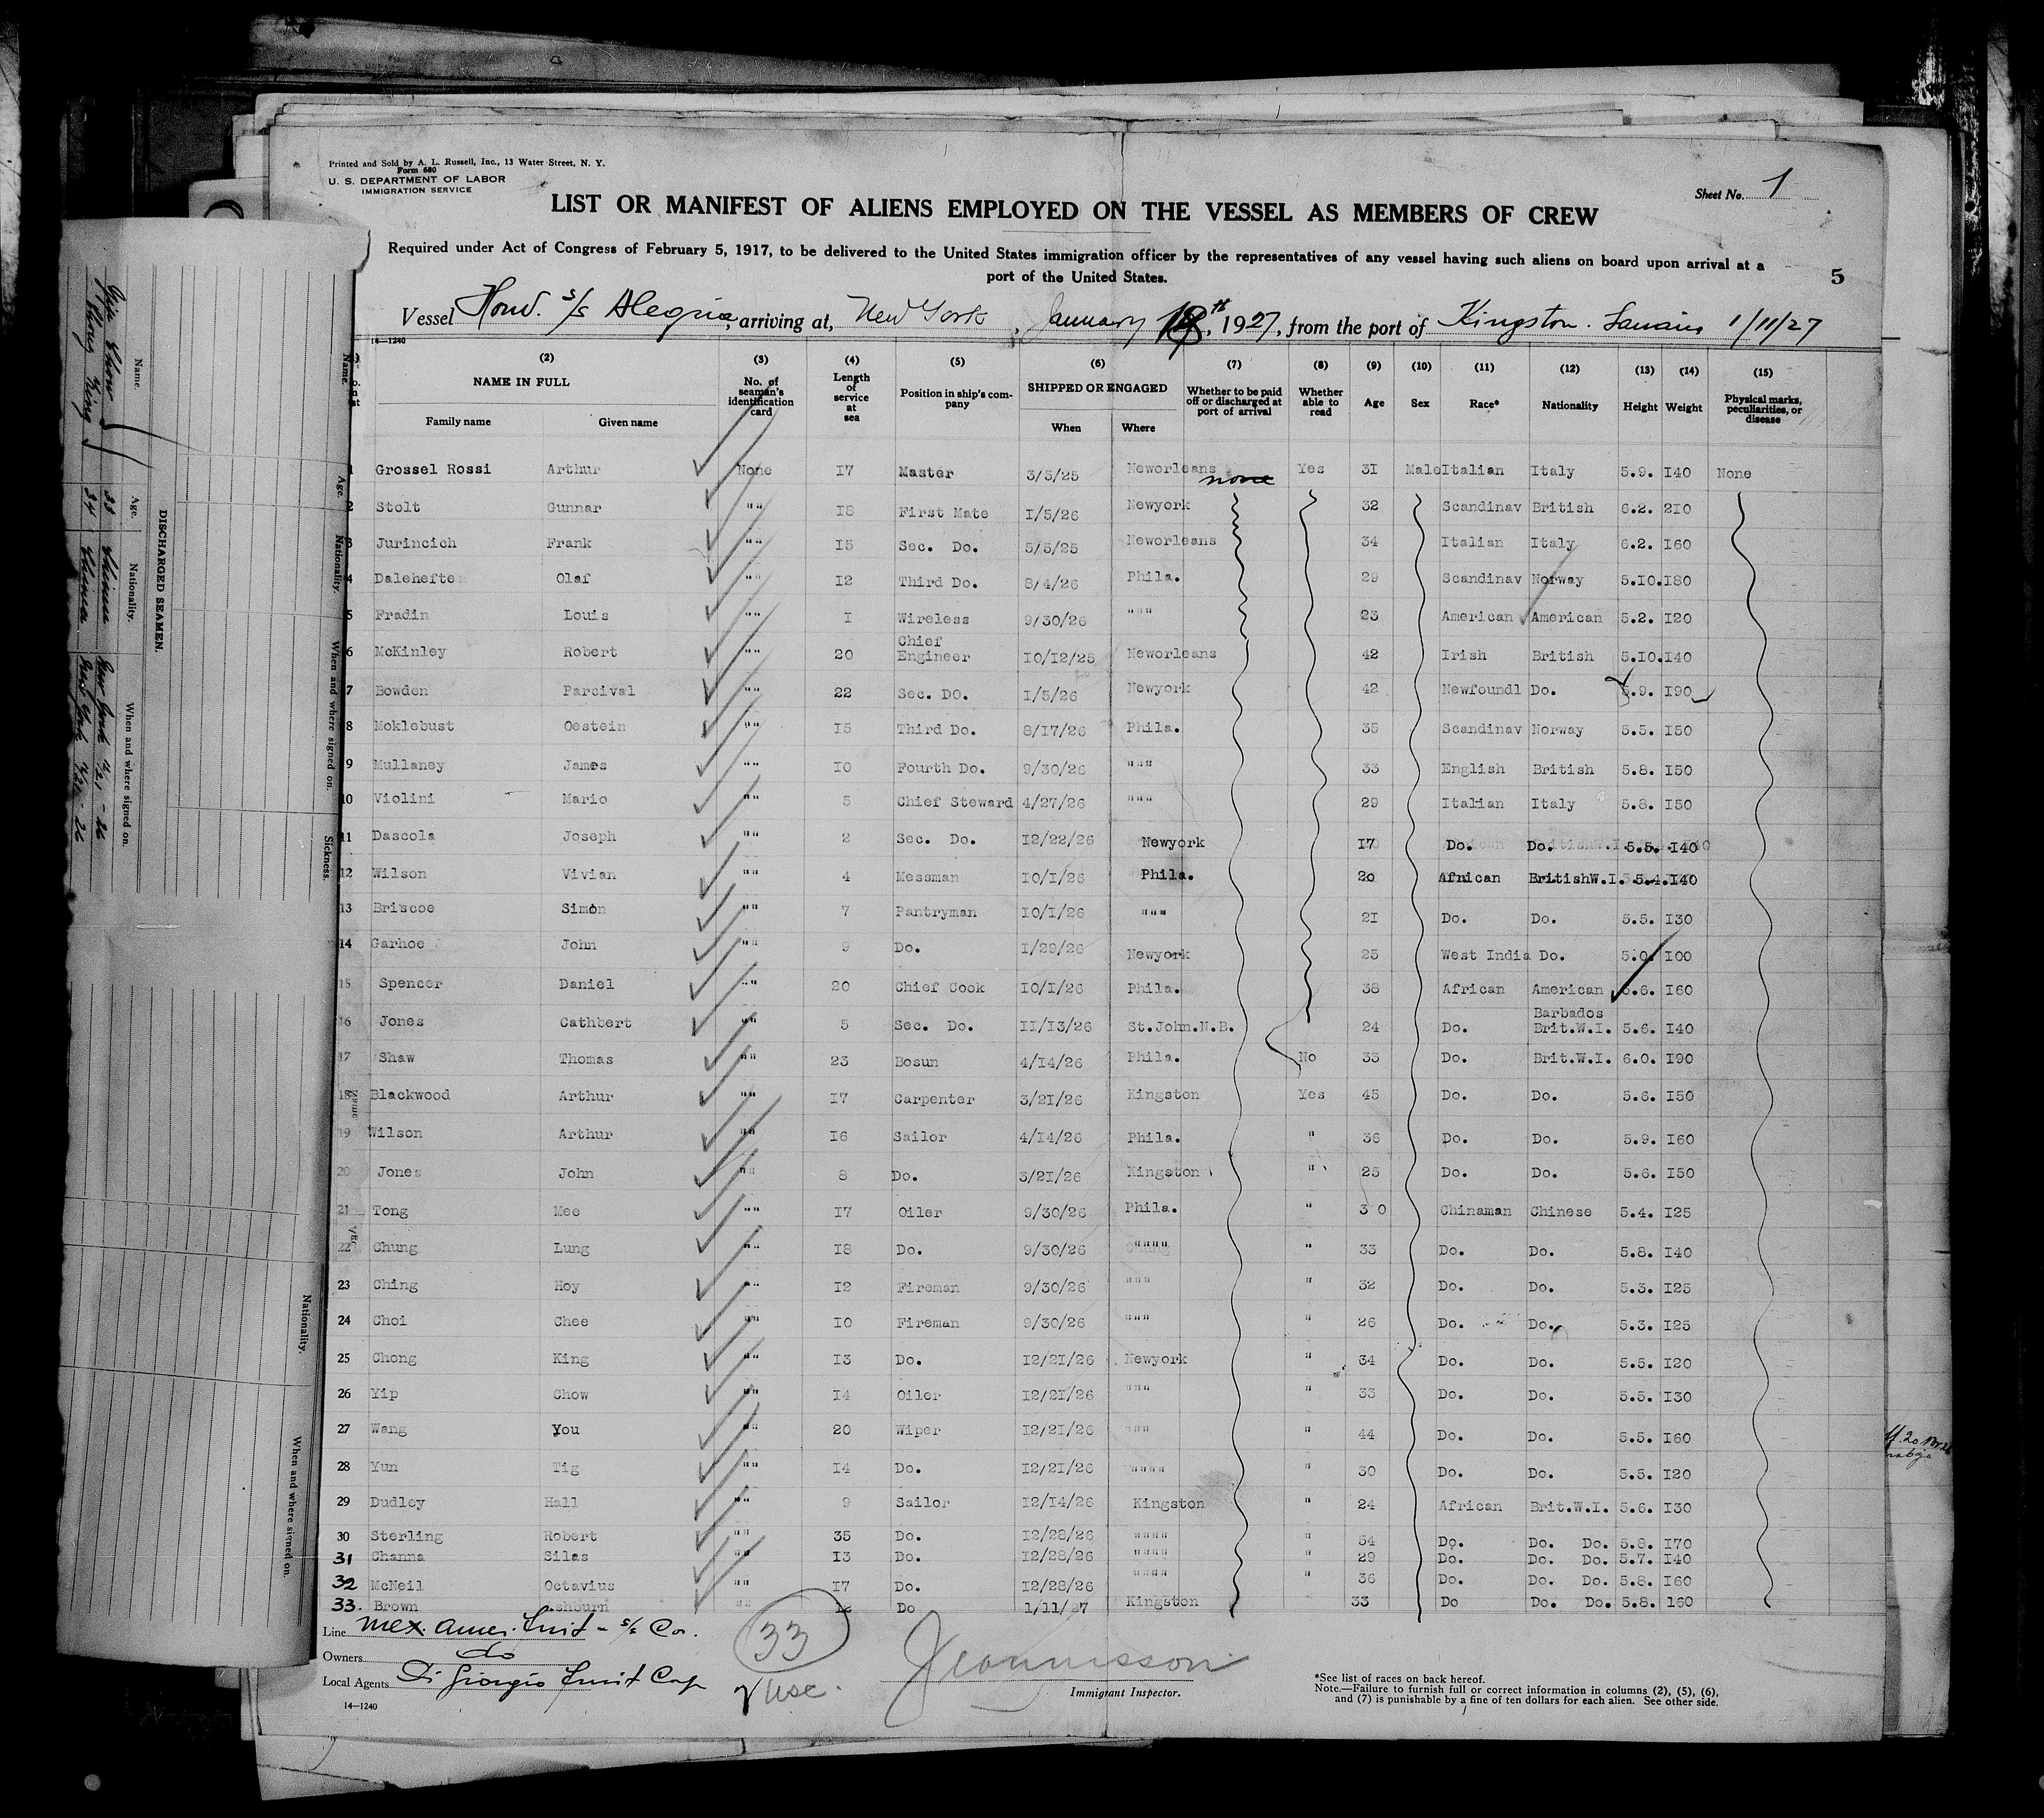 Printed and Sold by A. L. Russell, Inc., 13 Water Street, N. Y.
Form 680
U. S. DEPARTMENT OF LABOR
IMMIGRATION SERVICE
Sheet No. 1
LIST OR MANIFEST OF ALIENS EMPLOYED ON THE VESSEL AS MEMBERS OF CREW
Required under Act of Congress of February 5, 1917, to be delivered to the United States immigration officer by the representatives of any vessel having such aliens on board upon arrival at a
port of the United States.
5
Vessel Hond. s/s Alegria, arriving at, New York, January 18th, 1927, from the port of Kingston. 1/11/27
14—1240
(2) (3) (4) (5) (6) (7) (8) (9) (10) (11) (12) (13) (14) (15)
NAME IN FULL
Family name Given name
No. of seaman's identification card
Length of service at sea
Position in ship's company
SHIPPED OR ENGAGED
When Where
Whether to be paid off or discharged at port of arrival
Whether able to read
Age Sex Race* Nationality Height Weight
Physical marks, peculiarities, or disease
1 Grossel Rossi Arthur None 17 Master 3/5/25 Neworleans none Yes 31 Male Italian Italy 5.9. 140 None
2 Stolt Gunnar "" 18 First Mate 1/5/26 Newyork 32 Scandinav British 6.2. 210
3 Jurincich Frank "" 15 Sec. Do. 5/5/25 Neworleans 34 Italian Italy 6.2. 160
4 Dalehefte Olaf "" 12 Third Do. 8/4/26 Phila. 29 Scandinav Norway 5.10. 180
5 Fradin Louis "" 1 Wireless 9/30/26 """ 23 American American 5.2. 120
6 McKinley Robert "" 20 Chief Engineer 10/12/25 Neworleans 42 Irish British 5.10. 140
7 Bowden Parcival "" 22 Sec. DO. 1/5/26 Newyork 42 Newfoundl Do. 5.9. 190
8 Moklebust Oestein "" 15 Third Do. 8/17/26 Phila. 35 Scandinav Norway 5.5. 150
9 Mullaney James "" 10 Fourth Do. 9/30/26 """ 33 English British 5.8. 150
10 Violini Mario "" 5 Chief Steward 4/27/26 """ 29 Italian Italy 5.8. 150
11 Dascola Joseph "" 2 Sec. Do. 12/22/26 Newyork 17 Do. Do. 5.5. 140
12 Wilson Vivian "" 4 Messman 10/1/26 Phila. 20 African BritishW.I. 5.4. 140
13 Briscoe Simon "" 7 Pantryman 10/1/26 """ 21 Do. Do. 5.5. 130
14 Garhoe John "" 9 Do. 1/29/26 Newyork 25 West India Do. 5.0. 100
15 Spencer Daniel "" 20 Chief Cook 10/1/26 Phila. 38 African American 5.6. 160
16 Jones Cathbert "" 5 Sec. Do. 11/13/26 St.John.N.B. 24 Do. Barbados Brit.W.I. 5.6. 140
17 Shaw Thomas "" 23 Bosun 4/14/26 Phila. No 33 Do. Brit.W.I. 6.0. 190
18 Blackwood Arthur "" 17 Carpenter 3/21/26 Kingston Yes 45 Do. Do. 5.6. 150
19 Wilson Arthur "" 16 Sailor 4/14/26 Phila. " 36 Do. Do. 5.9. 160
20 Jones John "" 8 Do. 3/21/26 Kingston " 25 Do. Do. 5.6. 150
21 Tong Mee "" 17 Oiler 9/30/26 Phila. " 30 Chinaman Chinese 5.4. 125
22 Chung Lung "" 18 Do. 9/30/26 """" " 33 Do. Do. 5.8. 140
23 Ching Hoy "" 12 Fireman 9/30/26 """ " 32 Do. Do. 5.3. 125
24 Choi Chee "" 10 Fireman 9/30/26 """ " 26 Do. Do. 5.3. 125
25 Chong King "" 13 Do. 12/21/26 Newyork " 34 Do. Do. 5.5. 120
26 Yip Chow "" 14 Oiler 12/21/26 """ " 33 Do. Do. 5.5. 130
27 Wang You "" 20 Wiper 12/21/26 """ " 44 Do. Do. 5.5. 160
28 Yun Tig "" 14 Do. 12/21/26 """" " 30 Do. Do. 5.5. 120
29 Dudley Hall "" 9 Sailor 12/14/26 Kingston " 24 African Brit.W.I. 5.6. 130
30 Sterling Robert "" 35 Do. 12/28/26 """" " 54 Do. Do. Do. 5.8. 170
31 Channa Silas "" 13 Do. 12/28/26 """" " 29 Do. Do. Do. 5.7. 140
32 McNeil Octavius "" 17 Do. 12/28/26 """" " 36 Do. Do. Do. 5.8. 160
33. Brown Ashburn "" 12 Do 1/11/27 Kingston 33 Do Do. Do. 5.8. 160
Line Mex. Amer. Fruit - s/s Co.
Owners do
Local Agents Di Giorgio Fruit Corp
14—1240
33
Immigrant Inspector.
*See list of races on back hereof.
Note.—Failure to furnish full or correct information in columns (2), (5), (6),
and (7) is punishable by a fine of ten dollars for each alien. See other side.
DISCHARGED SEAMEN.
Name. Age. Nationality. When and where signed on.
Yip Chow 33 Chinese New York 12/21-26
Chong King 34 Chinese New York 12/21-26
Name. Age. Nationality. When and where signed on. Sickness.
Nationality. When and where signed on.